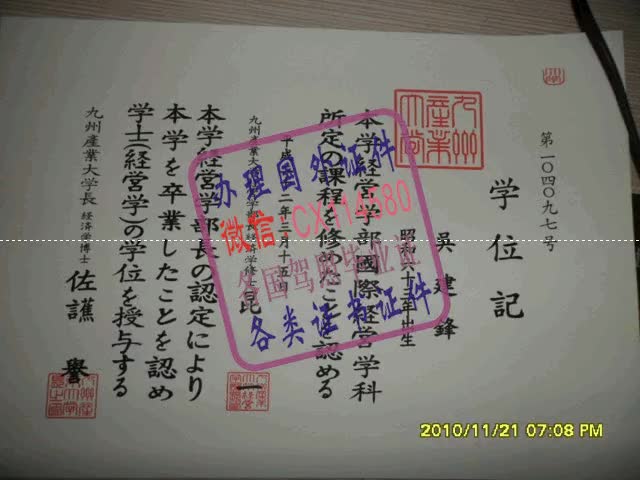 第一〇四〇九七号
学位記
吳建鋒
昭和六十三年出生
本学経営学部國際経営学科
所定の課程を修めたことを認める
平成 二年三月十五日
九州産業大 学部長 学修士 昆 一
本学経営学部長の認定により
本学を卒業したことを認め
学士(経営学)の学位を授与する
九州産業大学長 経済学博士 佐護 譽
办理国外证件
微信:CX114580
各国驾照毕业证
各类证书证件
2010/11/21 07:08 PM